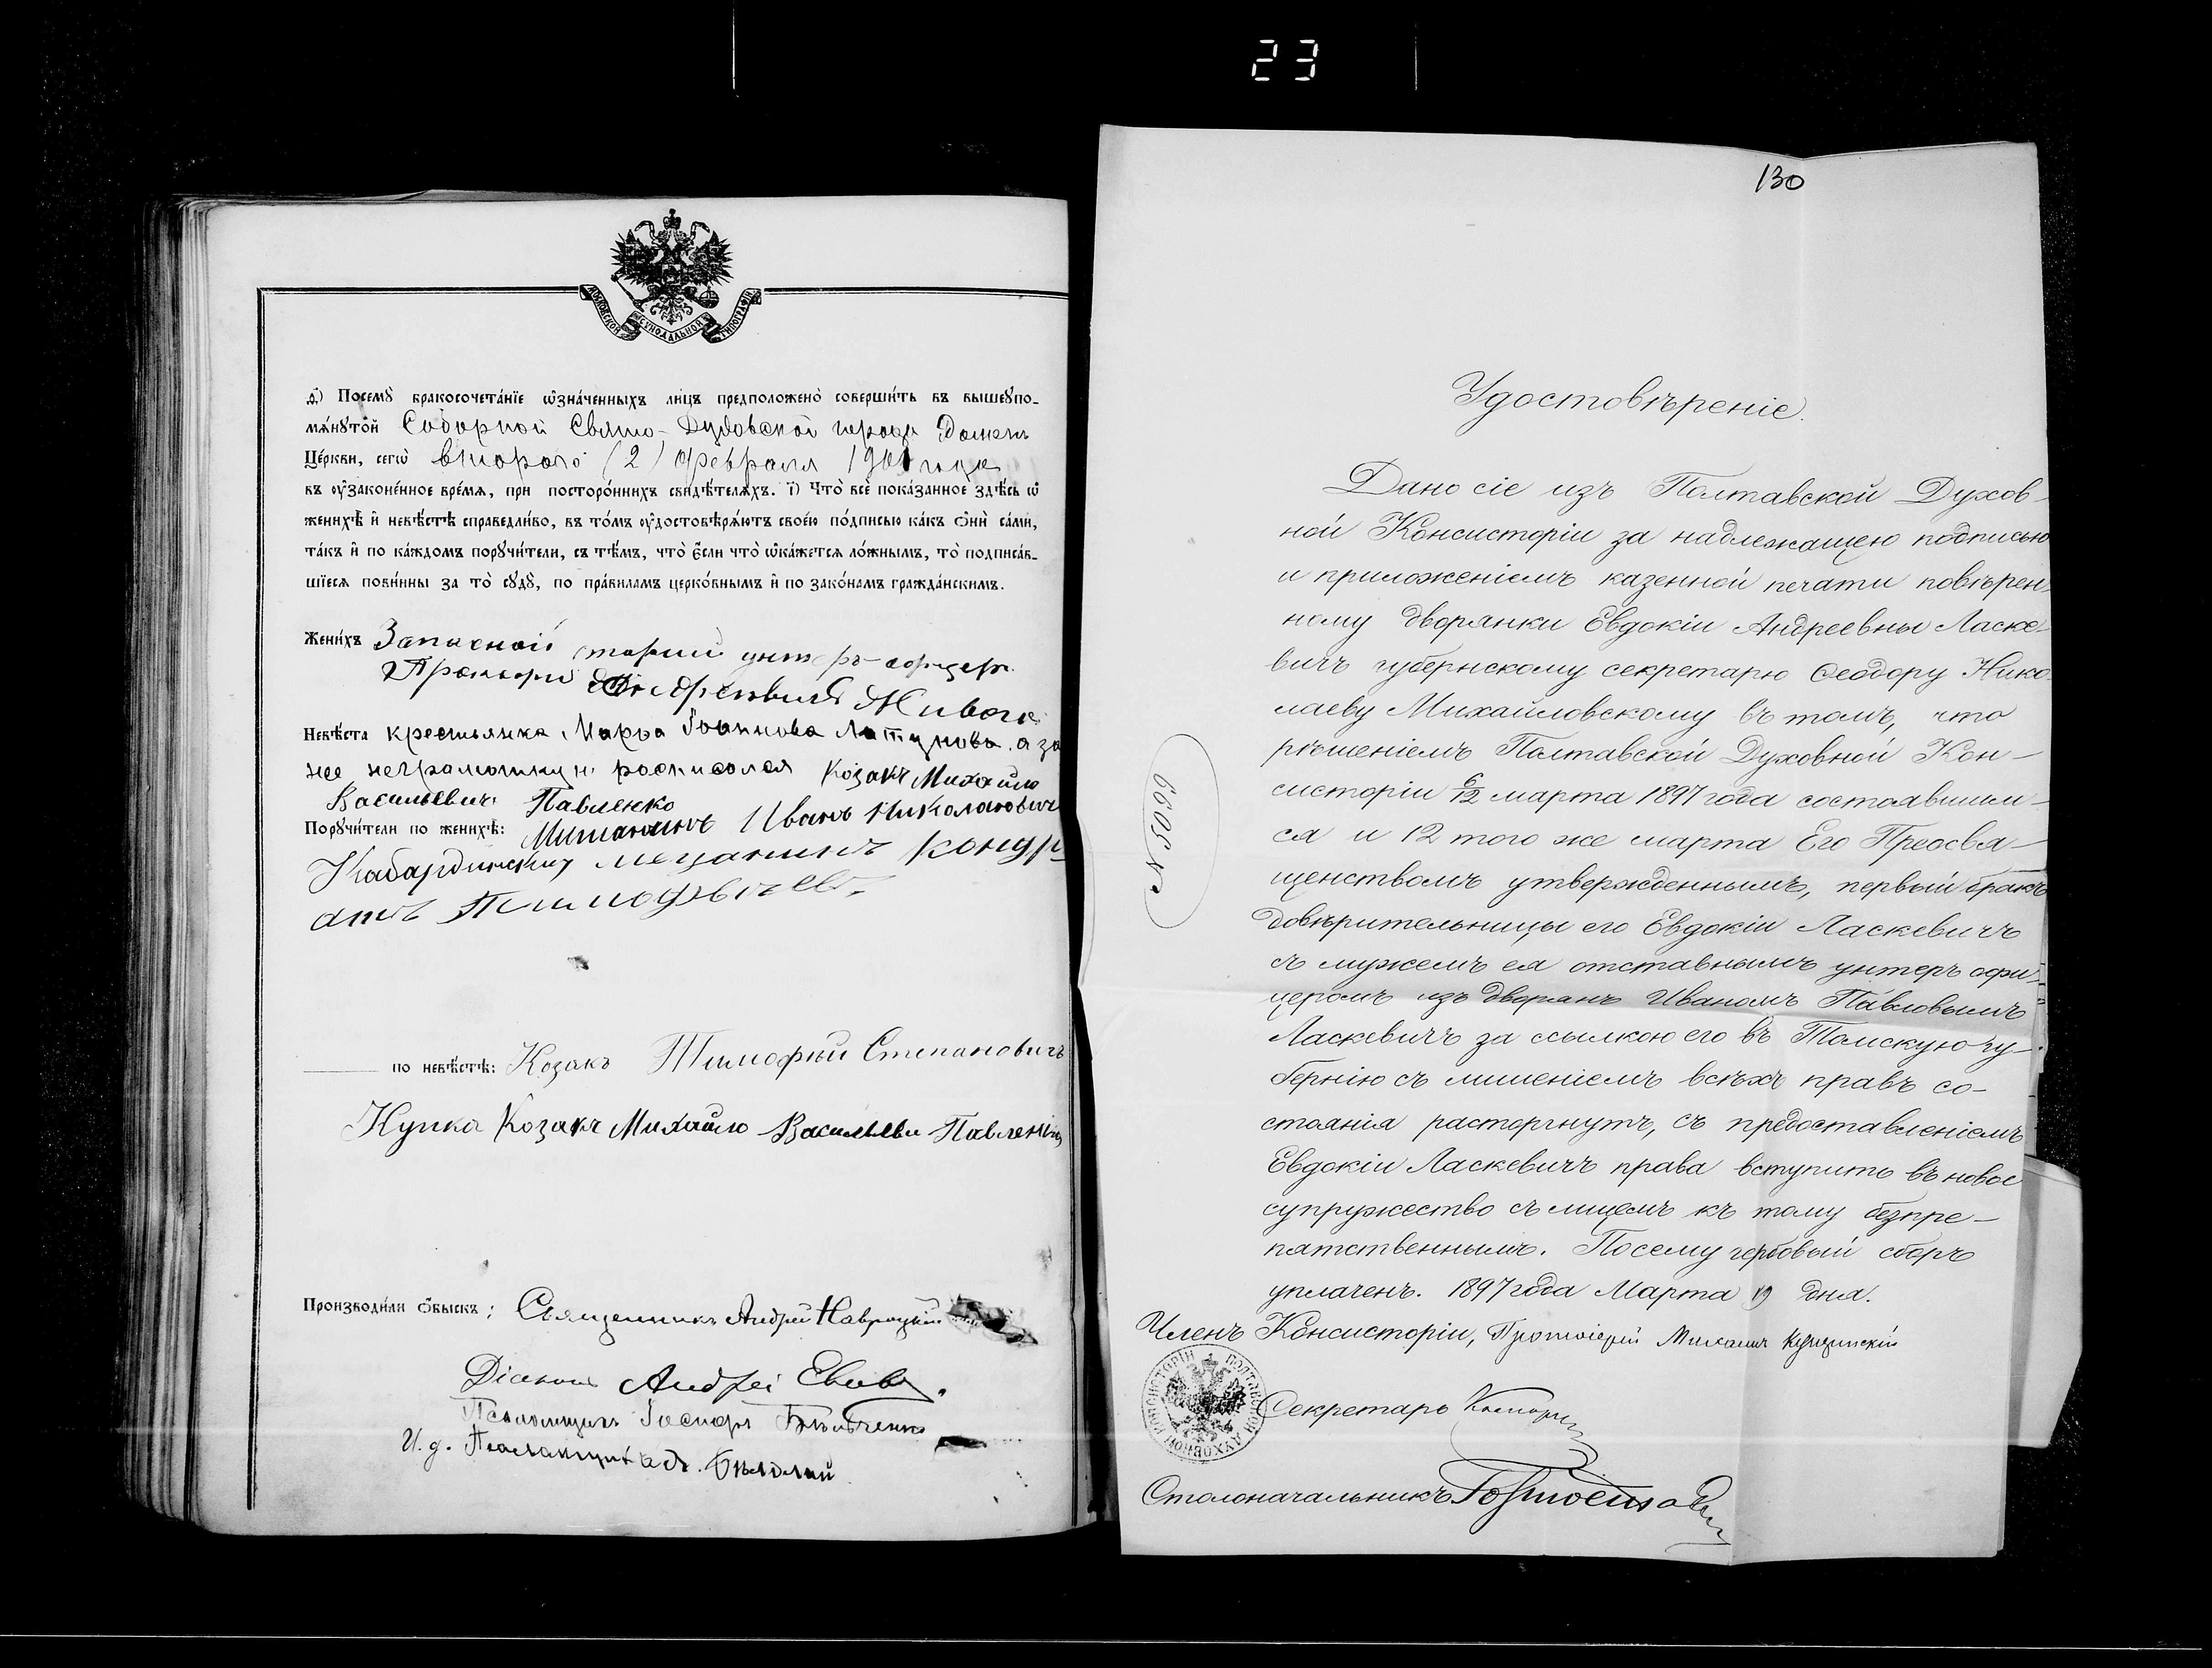 23
МОСКОВСКОЙ СѴНОДАЛЬНОЙ ТИПОГРАФІИ
д҃) Посемꙋ̀ бракосочета́нїе ѡ҆зна́ченныхъ ли́цъ предположено̀ соверши́ть въ вышеꙋпо-
мѧ́нꙋтой Соборной Свято-Духовской города Ромен
Це́ркви, сегѡ̀ второго (2) февраля 1901 года
въ ᲂу҆законе́нное вре́мѧ, при посторо́ннихъ свидѣ́телѧхъ. ı҃) Что̀ всѐ пока́занное здѣ́сь ѡ҆
женихѣ̀ и҆ невѣ́стѣ справедли́во, въ то́мъ ᲂу҆достовѣрѧ́ютъ свое́ю по́дписью ка́къ ѻ҆нѝ са́ми,
та́къ и҆ по ка́ждомъ порꙋчи́тели, съ тѣ́мъ, что̀ є҆́сли что̀ ѡ҆ка́жетсѧ ло́жнымъ, то̀ подписа́в-
шїесѧ пови́нны за то̀ сꙋдꙋ̀, по пра́виламъ церко́внымъ и҆ по зако́намъ гражда́нскимъ.
Жени́хъ Запасной унтеръ-офицеръ
Невѣ́ста крестьянка Марья Іоаннова а за
нее неграмотную росписался Козакъ Михайло
Васильевичъ Павленко
Порꙋчи́тели по женихѣ̀: Мищанинъ Иванъ Николаевичъ
Кабардинскій мещанинъ Кондр
атъ
по невѣ́стѣ: Козакъ Тимофѣй Степановичъ
Купка Козакъ Михайло Васильеви Павленко
Производи́ли ѻ҆́быскъ: Священникъ Андрей Навроцкій
Діаконъ Андрей
Псаломщикъ
И. д. Псаломщика
130
Удостовѣреніе.
Дано сіе изъ Полтавской Духов-
ной Консисторіи за надлежащею подписью
и приложеніемъ казенной печати повѣрен-
ному дворянки Евдокіи Андреевны Ласке-
вичъ губернскому секретарю Ѳеодору Нико-
лаеву Михайловскому въ томъ, что
рѣшеніемъ Полтавской Духовной Кон-
систоріи 6/12 марта 1897 года состоявшим-
ся и 12 того же марта Его Преосвя-
щенствомъ утвержденнымъ, первый бракъ
довѣрительницы его Евдокіи Ласкевичъ
съ мужемъ ея отставнымъ унтеръ офи-
церомъ изъ дворянъ Иваномъ Павловымъ
Ласкевичъ за ссылкою его въ Томскую гу-
бернію съ лишеніемъ всѣхъ правъ со-
стоянія расторгнутъ, съ предоставленіемъ
Евдокіи Ласкевичъ права вступить въ новое
супружество съ лицемъ къ тому безпре-
пятственнымъ. Посему гербовый сборъ
уплаченъ. 1897 года Марта 19 дня.
№ 5099
Членъ Консисторіи, Протоіерей Михаилъ
ПОЛТАВСКОЙ ДУХОВНОЙ КОНСИСТОРІИ
Секретарь
Столоначальникъ